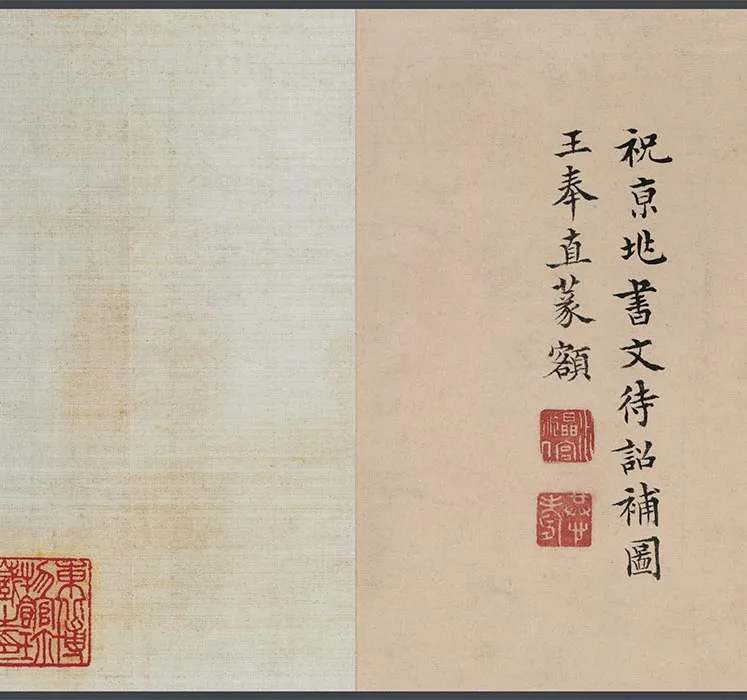 祝京兆書文待詔補圖
王奉直篆額
東北博
物館珍
藏之印